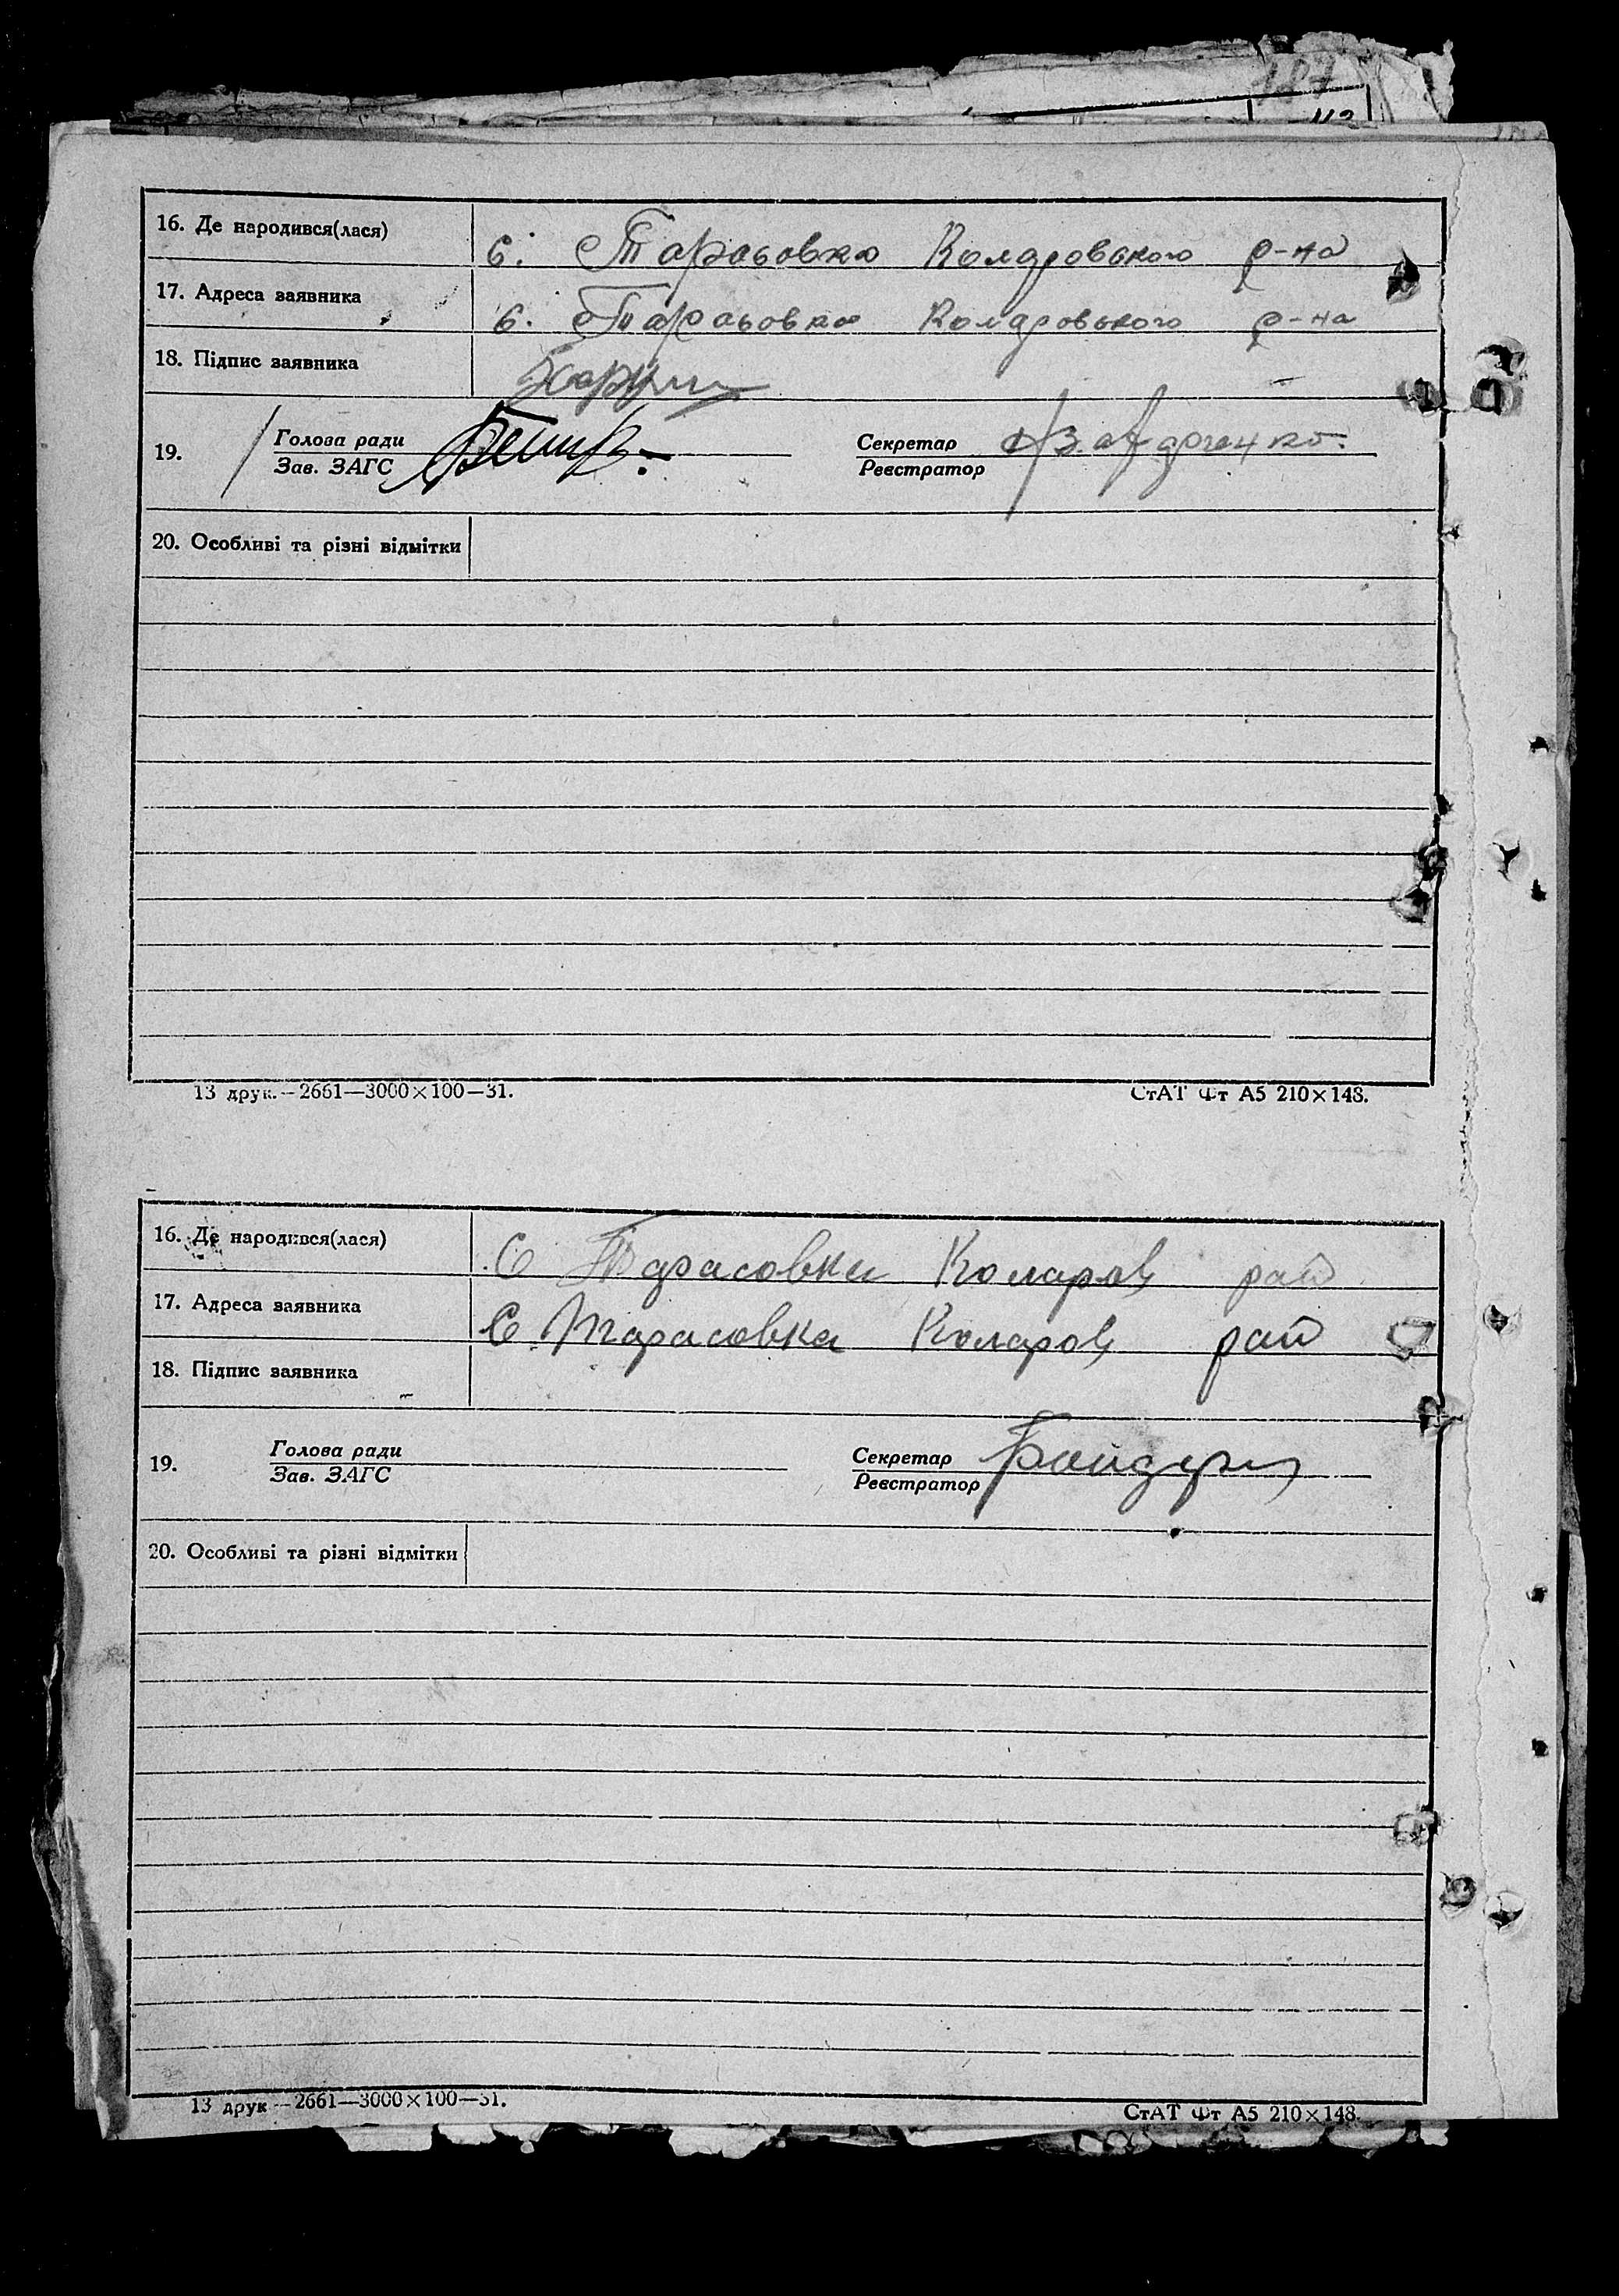 187
16. Де народився(лася)
с. Тарасовка Коларовського р-на
17. Адреса заявника
с. Тарасовка Коларовського р-на
18. Підпис заявника
19. Голова ради
Зав. ЗАГС
Секретар
Реєстратор
20. Особливі та різні відмітки
13 друк.—2661—3000×100—31. СтАТ Фт А5 210×148.
16. Де народився(лася)
С Тарасовка Коларов рай
17. Адреса заявника
С Тарасовка Коларов рай
18. Підпис заявника
19. Голова ради
Зав. ЗАГС
Секретар
Реєстратор
20. Особливі та різні відмітки
13 друк—2661—3000×100—31. СтАТ Фт А5 210×148.